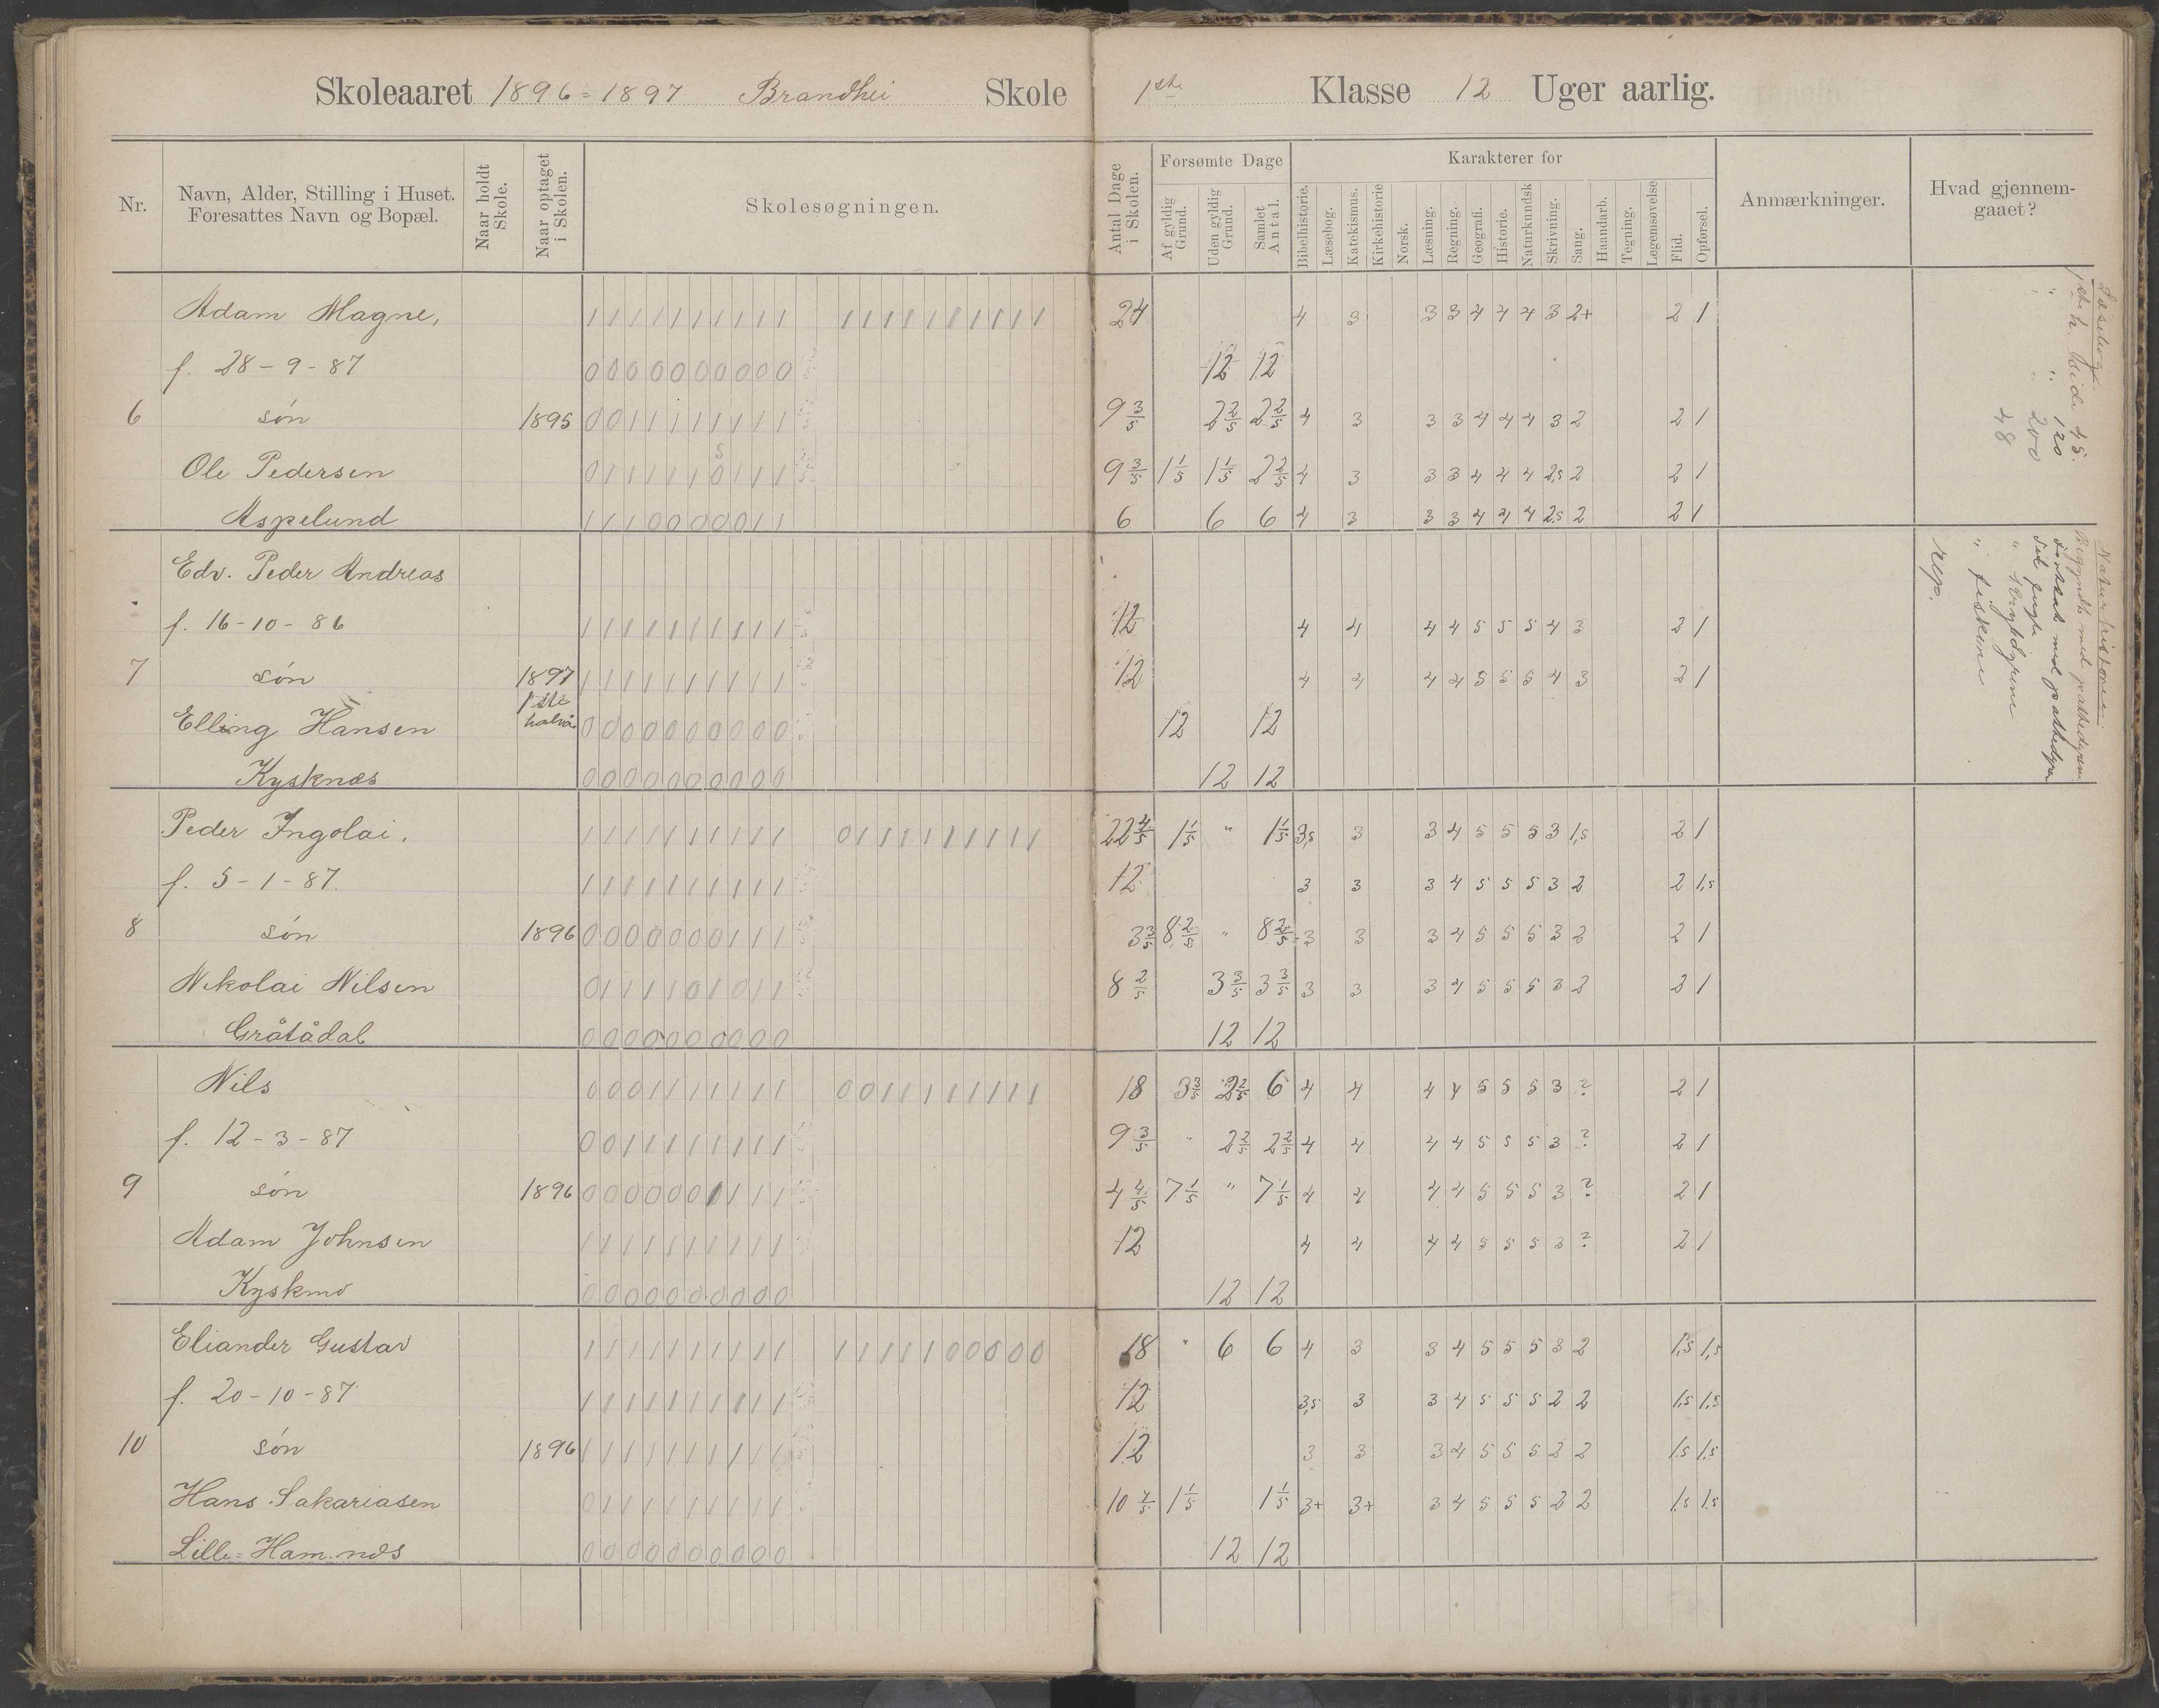 Skoleaaret 1896=1897 Brandhei Skole 1ste Klasse 12 Uger aarlig.
Nr.
Navn, Alder, Stilling i Huset.
Foresattes Navn og Bopæl.
Naar holdt Skole.
Naar optaget i Skolen.
Skolesøgningen.
Antal Dage i Skolen.
Forsømte Dage
Af gyldig Grund.
Uden gyldig Grund.
Samlet Antal.
Karakterer for
Bibelhistorie.
Læsebog.
Katekismus.
Kirkehistorie
Norsk.
Læsning.
Regning.
Geografi.
Historie.
Naturkundsk
Skrivning.
Sang.
Haandarb.
Tegning.
Legemsøvelse
Flid.
Opførsel.
Anmærkninger.
Hvad gjennem-
gaaet?
Adam Magne, 1111111111 1111111111 24 4 3 3 3 4 4 4 3 2+ 2 1
f. 28-9-87 0000000000 12 12
6 søn 1895 0011111111 9 3/5 2 2/5 2 2/5 4 3 3 3 4 4 4 3 2 2 1
Ole Pedersen 0111110111 9 3/5 1 1/5 1 1/5 2 2/5 4 3 3 3 4 4 4 2,5 2 2 1
Aspelund 1110000011 6 6 6 4 3 3 3 4 4 4 2,5 2 2 1
Edv. Peder Andreas
f. 16-10-86 1111111111 12 4 4 4 4 5 5 5 4 3 2 1
7 søn 1897 1111111111 12 4 4 4 4 5 5 5 4 3 2 1
1ste
Elling Hansen 0000000000 12 12
Kysknæs 0000000000 12 12
Peder Ingolai, 1111111111 0111111111 22 4/5 1 1/5 " 1 1/5 3,5 3 3 4 5 5 5 3 1,5 2 1
f. 5-1-87. 1111111111 12 3 3 3 4 5 5 5 3 2 2 1,5
8 søn 1896 0000000111 3 3/5 8 2/5 " 8 2/5 3 3 3 4 5 5 5 3 2 2 1
Nikolai Nilsen 0111101011 8 2/5 3 3/5 3 3/5 3 3 3 4 5 5 5 3 2 2 1
Gråtådal 0000000000 12 12
Nils 0001111111 0011111111 18 3 3/5 2 2/5 6 4 4 4 4 5 5 5 3 ? 2 1
f. 12-3-87 0011111111 9 3/5 " 2 2/5 2 2/5 4 4 4 4 5 5 5 3 ? 2 1
9 søn 1896 0000001111 4 4/5 7 1/5 " 7 1/5 4 4 4 4 5 5 5 3 ? 2 1
Adam Johnsen 1111111111 12 4 4 4 4 5 5 5 3 ? 2 1
Kyskmo 0000000000 12 12
Eliander Gustav 1111111111 1111100000 18 " 6 6 4 3 3 4 5 5 5 3 2 1,5 1,5
f. 20-10-87 1111111111 12 3,5 3 3 4 5 5 5 2 2 1,5 1,5
10 søn 1896 1111111111 12 3 3 3 4 5 5 5 2 2 1,5 1,5
Hans Sakariasen 0111111111 10 4/5 1 1/5 1 1/5 3+ 3+ 3 4 5 5 5 2 2 1,5 1,5
Lille=Hamnæs 0000000000 12 12
Læsebogi
1ste h. side 45.
" " 120
" " 200
48
Naturhistorie
Begyndte med pattedyrene
Fortsat med pattedyra
" fiskene
rep.